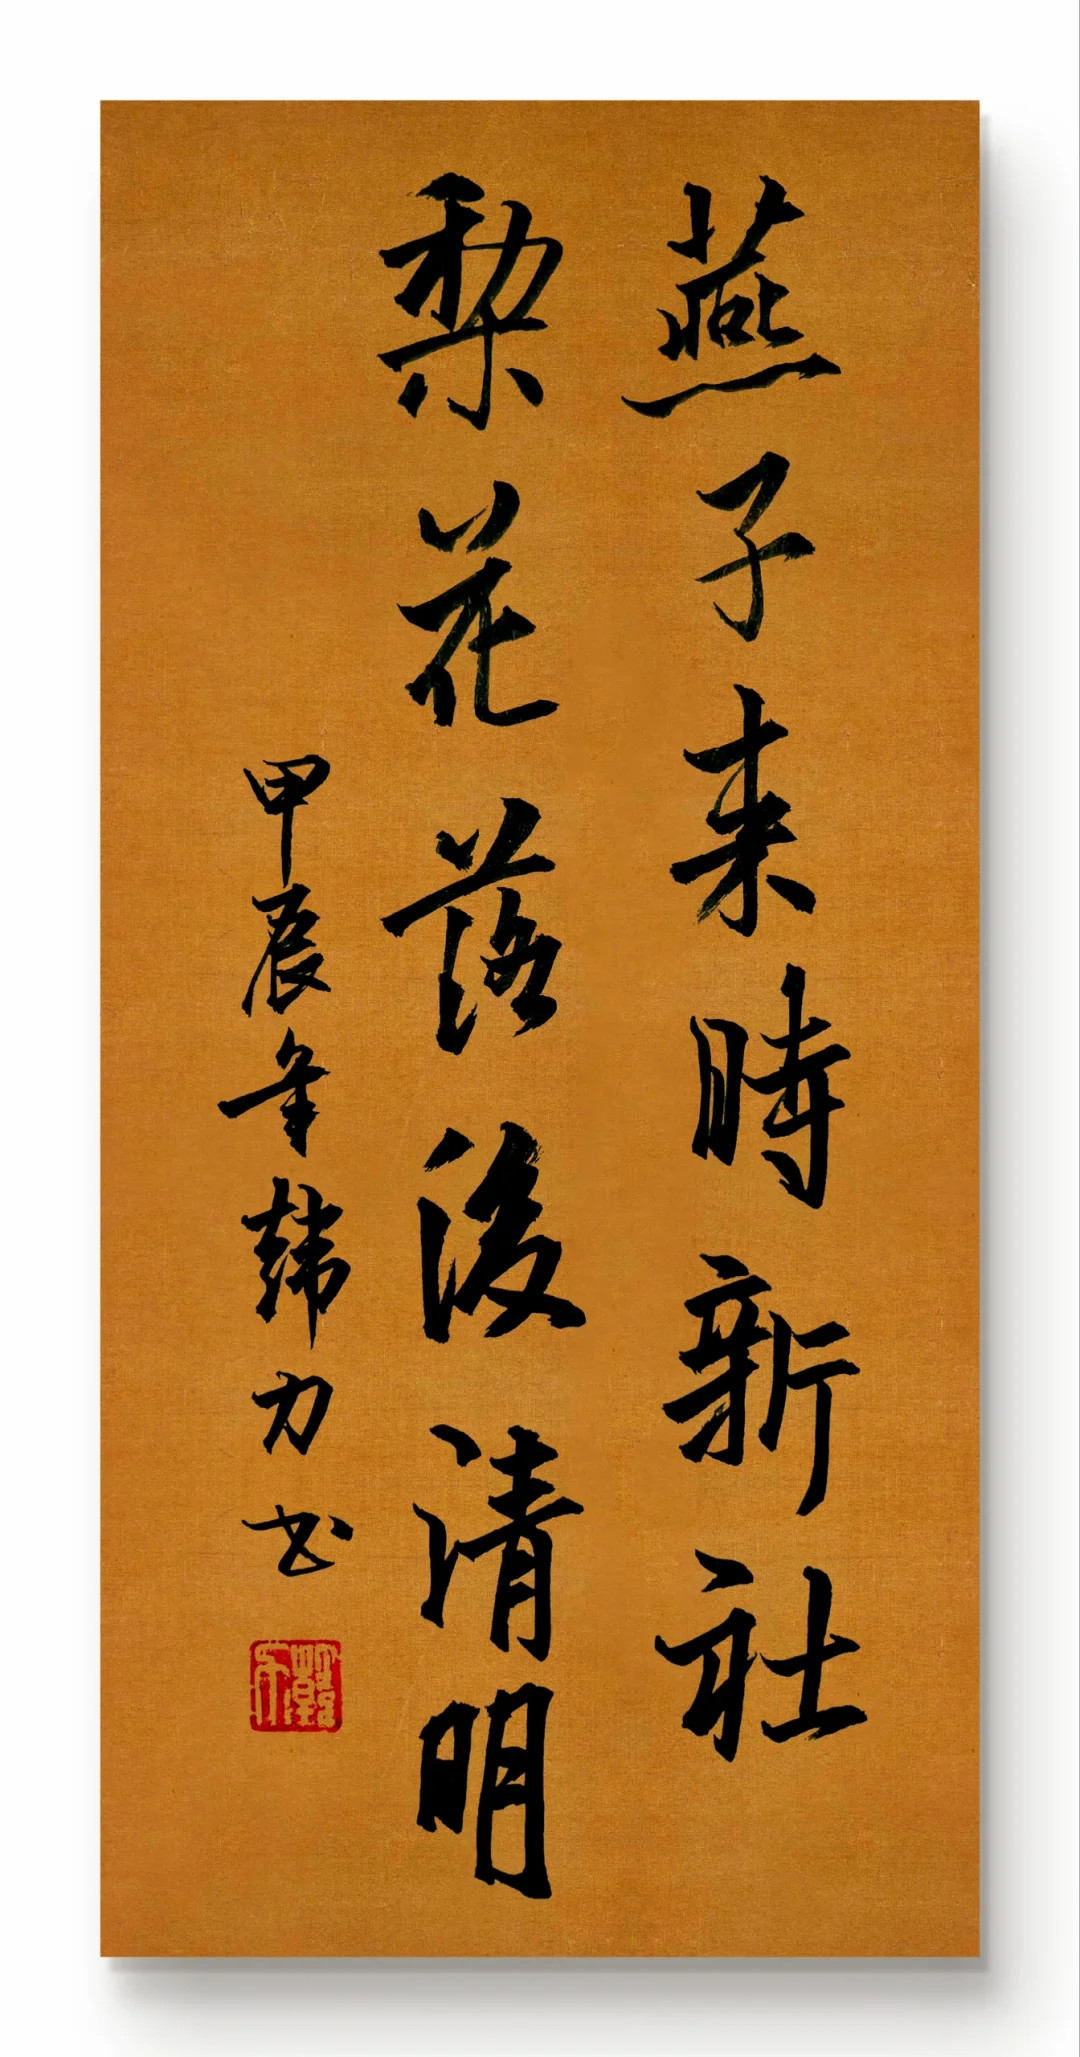 燕子来時新社
梨花落後清明
甲辰年韓力书